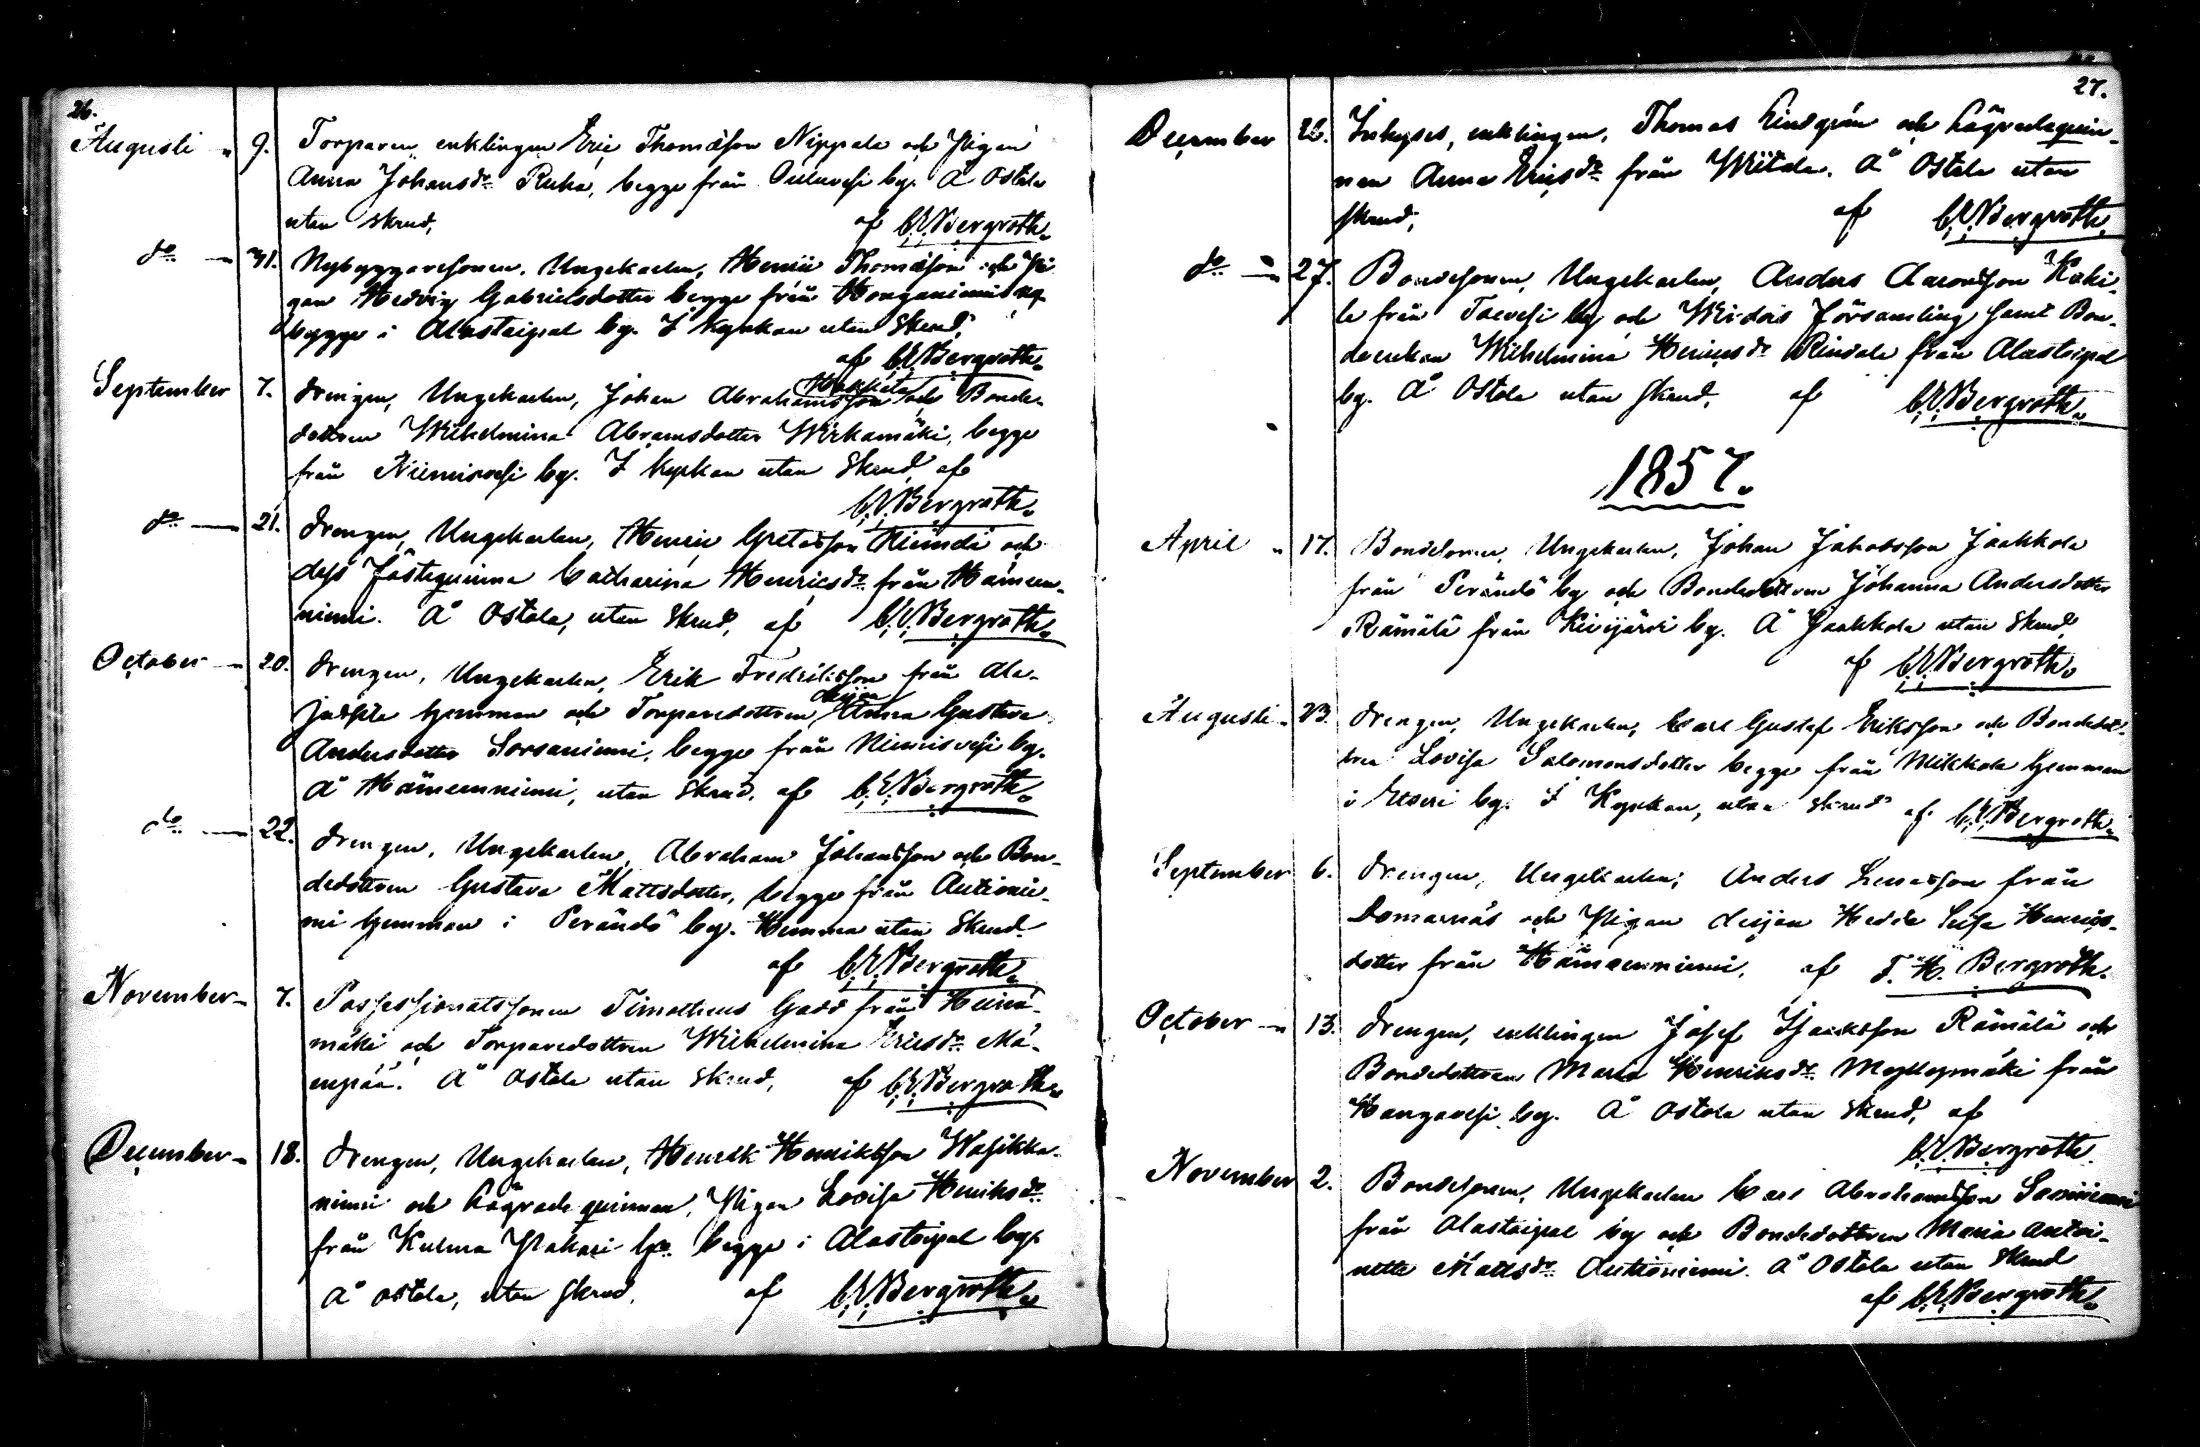 26.
Augusti " 9. Torparen, enklingen Eric Thomasson Nippala och Pigan
Anna Johansdr Ruha, begge från Ouluvesi by. Å Ostola
utan skrud, af C.E. Bergroth.
do — 31. Nybyggaresonen, Ungekarlen, Henric Thomasson och Pi-
gan Hedvig Gabrielsdotter begge från Honganiemi ny-
bygge i Alastaipal by. I Kyrkan utan skrud,
af C.E. Bergroth.
September 7. Drengen, Ungekarlen, Johan Abrahamsson Hakkila och Bonde-
dottren Wilhelmina Abramsdotter Wirkamäki, begge
från Niemisvesi by. I Kyrkan utan skrud, af
C.E. Bergroth.
do — 21. Drengen, Ungekarlen, Henric Gretasson och
dess Fästeqvinna Catharina Henricsdr från Hämeen-
niemi. Å Ostola, utan skrud, af C.E. Bergroth.
October — 20. Drengen, Ungekarlen, Erik Fredriksson från Ala-
hemman och Torparedottren, Anna Gustava
Andersdotter Sorsaniemi, begge från Niemisvesi by.
Å Hämeenniemi, utan skrud, af C.E. Bergroth.
do — 22. Drengen, Ungekarlen, Abraham Johansson och Bon-
dedottren Gustava Mattsdotter, begge från Autionie-
mi hemman i Perändö by. Hemma utan skrud
af C.E. Bergroth.
November — 7. Possessionatssonen Timotheus Gadd från Heinä-
mäki och Torparedottren Wilhelmina Ericsdr Mä-
enpää. Å Ostola utan skrud, af C.E. Bergroth.
December — 18. Drengen, Ungekarlen, Henrik Henriksson Wasikka-
niemi och Lägrade qvinnan, Pigan Lovisa Henriksdr
från Kulma hn begge i Alastaipal by.
Å Ostola, utan skrud, af C.E. Bergroth.
27.
December 26. Inhyses, enklingen, Thomas Lindgrén och Lägradeqvin-
nan Anna Ericsdr från Wiitala. Å Ostola utan
skrud, af C.E. Bergroth.
do — 27. Bondesonen, Ungekarlen, Anders Aaronsson Koki-
la från by och Wirdois Församling samt Bon-
deenkan Wilhelmina Henricsdr från Alastaipal
by. Å Ostola utan skrud, af C.E. Bergroth.
1857.
April " 17. Bondesonen, Ungekarlen, Johan Jakobsson Jaakkola
från Perändö by och Bondedottren Johanna Andersdotter
Rämälä från Kivijärvi by. Å Jaakkola utan skrud
af C.E. Bergroth.
Augusti " 23. Drengen, Ungekarlen, Carl Gustaf Eriksson och Bondedot-
tren Lovisa Salomonsdotter begge från Mikkola hemman
i Etseri by. I Kyrkan, utan skrud af C.E. Bergroth.
September 6. Drengen, Ungekarlen, Anders Lenasson från
Domarnäs och Pigan Hedda Lisa Henriks-
dotter från Hämeenniemi, af F. H. Bergroth.
October — 13. Drengen, enklingen Josef Isaksson Rämälä och
Bondedottren Maria Henriksdr Myllymäki från
Hangavesi by. Å Ostola utan skrud, af
C.E. Bergroth.
November 2. Bondesonen, Ungekarlen Carl Abrahamsson
från Alastaipal by och Bondedottren Maria Antoi-
nette Mattsdr Autioniemi. Å Ostola utan skrud
af C.E. Bergroth.